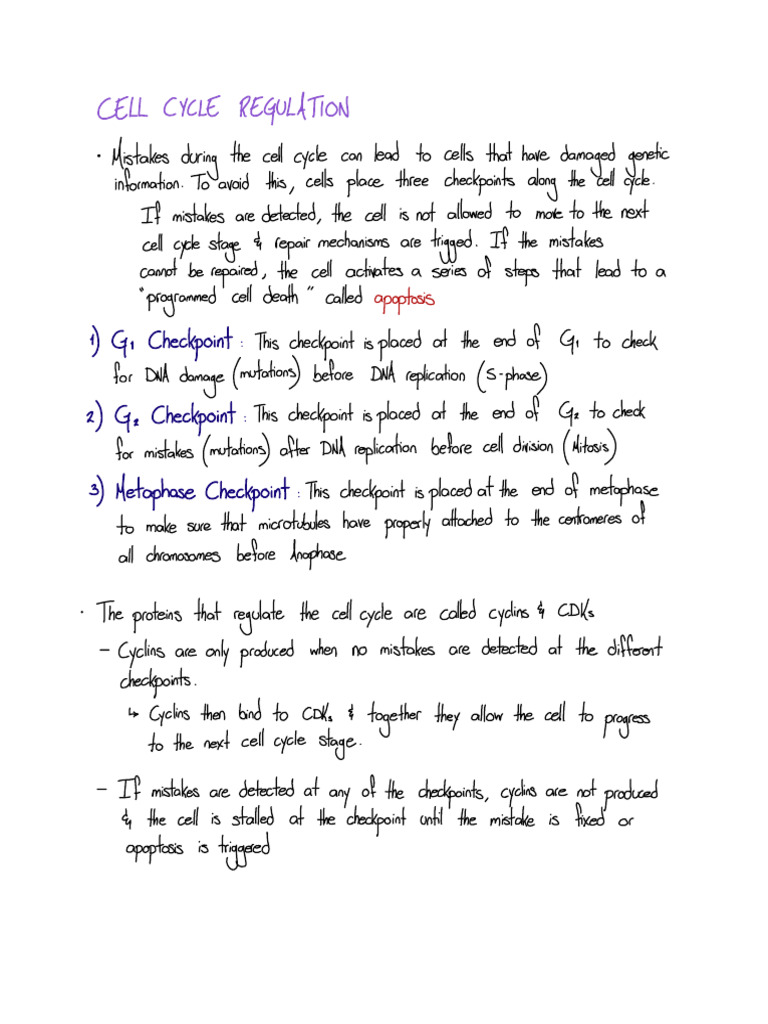 CELL CYCLE REGULATION
· Mistakes during the cell cycle can lead to cells that have damaged genetic
information. To avoid this, cells place three checkpoints along the cell cycle.
If mistakes are detected, the cell is not allowed to move to the next
cell cycle stage & repair mechanisms are trigged. If the mistakes
cannot be repaired, the cell activates a series of steps that lead to a
"programmed cell death" called apoptosis
1) G₁ Checkpoint : This checkpoint is placed at the end of G₁ to check
for DNA damage (mutations) before DNA replication (S-phase)
2) G₂ Checkpoint : This checkpoint is placed at the end of G₂ to check
for mistakes (mutations) after DNA replication before cell division (Mitosis)
3) Metaphase Checkpoint : This checkpoint is placed at the end of metaphase
to make sure that microtubules have properly attached to the centromeres of
all chromosomes before Anaphase
· The proteins that regulate the cell cycle are called cyclins & CDKs
- Cyclins are only produced when no mistakes are detected at the different
checkpoints.
↳ Cyclins then bind to CDKs & together they allow the cell to progress
to the next cell cycle stage.
- If mistakes are detected at any of the checkpoints, cyclins are not produced
& the cell is stalled at the checkpoint until the mistake is fixed or
apoptosis is triggered